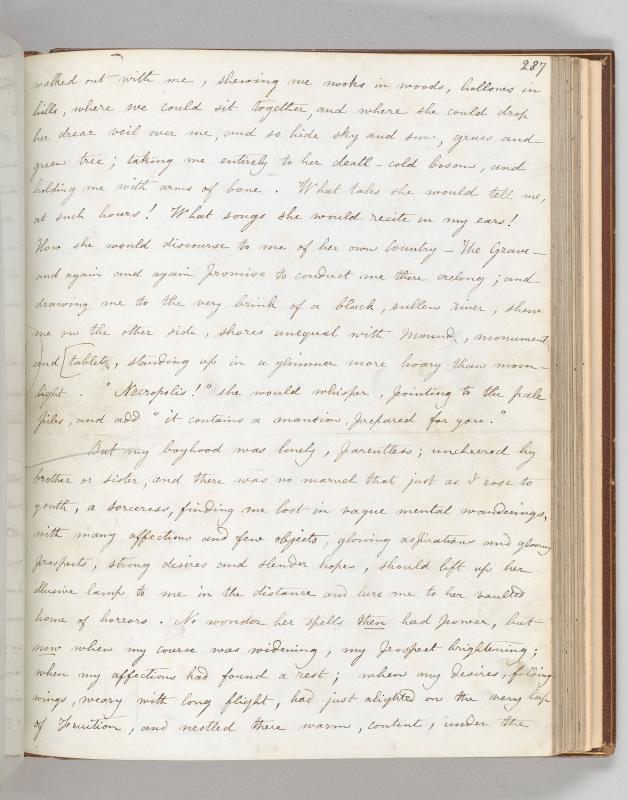 287
walked out with me, shewing me nooks in woods, hollows in
hills, where we could sit together, and where she could drop
her drear veil over me, and so hide sky and sun, grass and
green tree; taking me entirely to her death-cold bosom, and
holding me with arms of bone. What tales she would tell me,
at such hours! What songs she would recite in my ears!
How she would discourse to me of her own Country - The Grave -
and again and again promise to conduct me there erelong; and
drawing me to the very brink of a black, sullen river, shew
me on the other side, shores unequal with Mound, monument
and [tablet, standing up in a glimmer more hoary than moon-
light. "Necropolis!" she would whisper, pointing to the pale
piles, and add "it contains a mansion, prepared for you."
But my boyhood was lonely, parentless; uncheered by
brother or sister, and there was no marvel that just as I rose to
youth, a sorceress, finding me lost in vague mental wanderings,
with many affections and few objects, glowing aspirations and gloomy
prospects, strong desires and slender hopes, should lift up her
illusive lamp to me in the distance and lure me to her vaulted
home of horrors. No wonder her spells then had power, but
now when my course was widening, my prospect brightening;
when my affections had found a rest; when my desires, folding
wings, weary with long flight, had just alighted on the very lap
of Fruition, and nestled there warm, content, under the